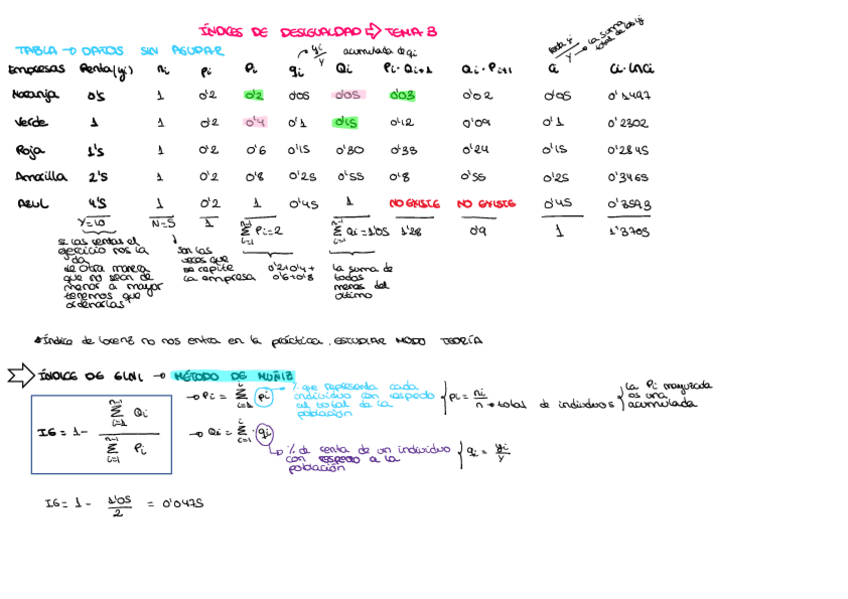 ÍNDICES DE DESIGUALDAD → TEMA 3
TABLA → DATOS SIN AGUPAR
yi/Y acumulada de qi
renta yi / Y → la suma total de las yi
Empresas Renta(yi) ni pi Pi qi Qi Pi·Qi+1 Qi·Pi+1 ci ci·lnci
Naranja 0'5 1 0'2 0'2 0'05 0'05 0'03 0'02 0'05 0'1497
Verde 1 1 0'2 0'4 0'1 0'15 0'12 0'09 0'1 0'2302
Roja 1'5 1 0'2 0'6 0'15 0'30 0'33 0'24 0'15 0'2845
Amarilla 2'5 1 0'2 0'8 0'25 0'55 0'8 0'55 0'25 0'3465
Azul 4'5 1 0'2 1 0'45 1 NO EXISTE NO EXISTE 0'45 0'3593
Y=10 N=5 1 n-1 Σ i=1 Pi=2 n-1 Σ i=1 Qi=1'05 1'28 0'9 1 1'3703
si las rentas el
ejercicio nos la
da
de otra manera
que no sean de
menor a mayor
tenemos que
ordenarlas
son las
veces que
se repite
la empresa
0'2+0'4+
0'6+0'8
la suma de
todos
menos del
último
*Índice de Lorenz no nos entra en la práctica. ESTUDIAR MODO TEORÍA
ÍNDICE DE GINI → MÉTODO DE MUÑIZ
IG = 1 - n-1 Σ i=1 Qi / n-1 Σ i=1 Pi
→ Pi = i Σ i=1 pi → % que representa cada
individuo con respecto
al total de la
población
pi = ni/n → total de individuos
la Pi mayúscula
es una
acumulada
→ Qi = i Σ i=1 qi
→ % de renta de un individuo
con respecto a la
población
qi = yi/Y
IG = 1 - 1'05/2 = 0'0475